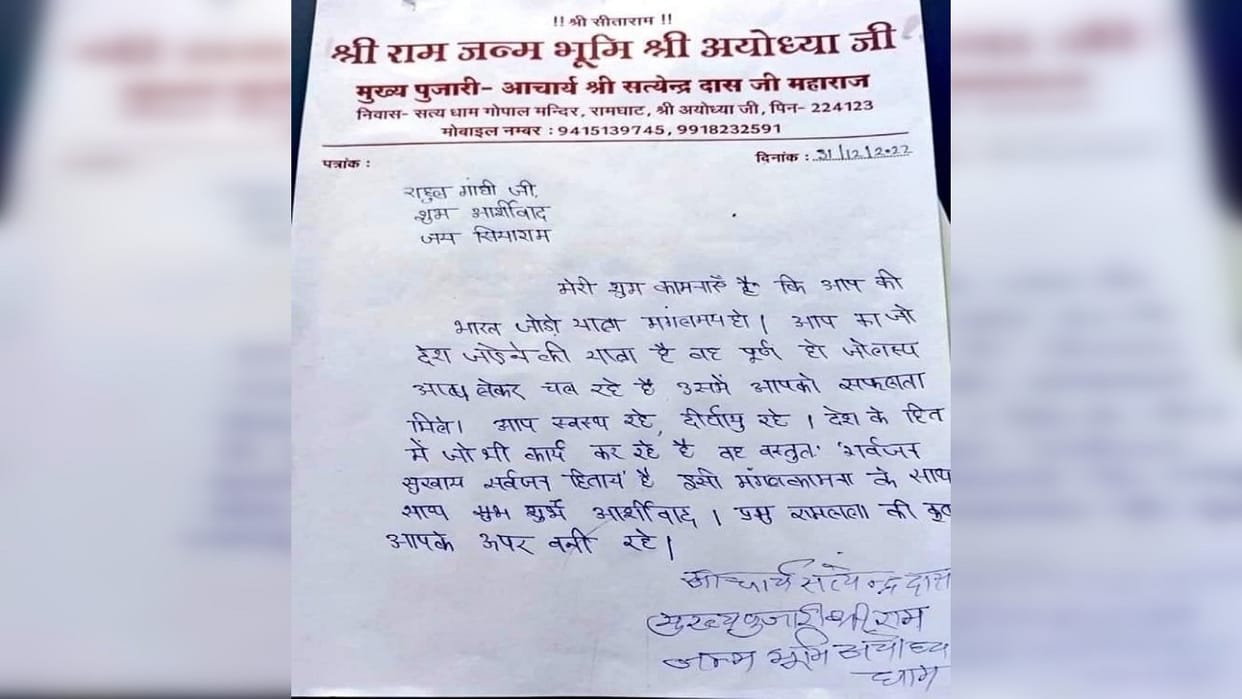 !! श्री सीताराम !!
श्री राम जन्म भूमि श्री अयोध्या जी
मुख्य पुजारी- आचार्य श्री सत्येन्द्र दास जी महाराज
निवास- सत्य धाम गोपाल मन्दिर, रामघाट, श्री अयोध्या जी, पिन- 224123
मोबाइल नम्बर : 9415139745, 9918232591
पत्रांक : दिनांक : 31/12/2022
राहुल गांधी जी,
शुभ आर्शीवाद
जय सियाराम
मेरी शुभ कामनाएँ है कि आप की
भारत जोड़ो यात्रा मंगलमय हो । आप का जो
देश जोड़ने की यात्रा है वह पूर्ण हो जो लक्ष्य
लेकर चल रहे है उसमें आपको सफलता
मिले। आप स्वस्थ रहे, दीर्घायु रहे । देश के हित
में जो भी कार्य कर रहे है वह वस्तुत: 'सर्वजन
सुखाय सर्वजन हिताय' है इसी मंगलकामना के साथ
शुभ आर्शीवाद । प्रभु रामलला की
आपके ऊपर बनी रहे।
आचार्य सत्येन्द्र दास
मुख्य पुजारी श्री राम
जन्म भूमि अयोध्या
धाम